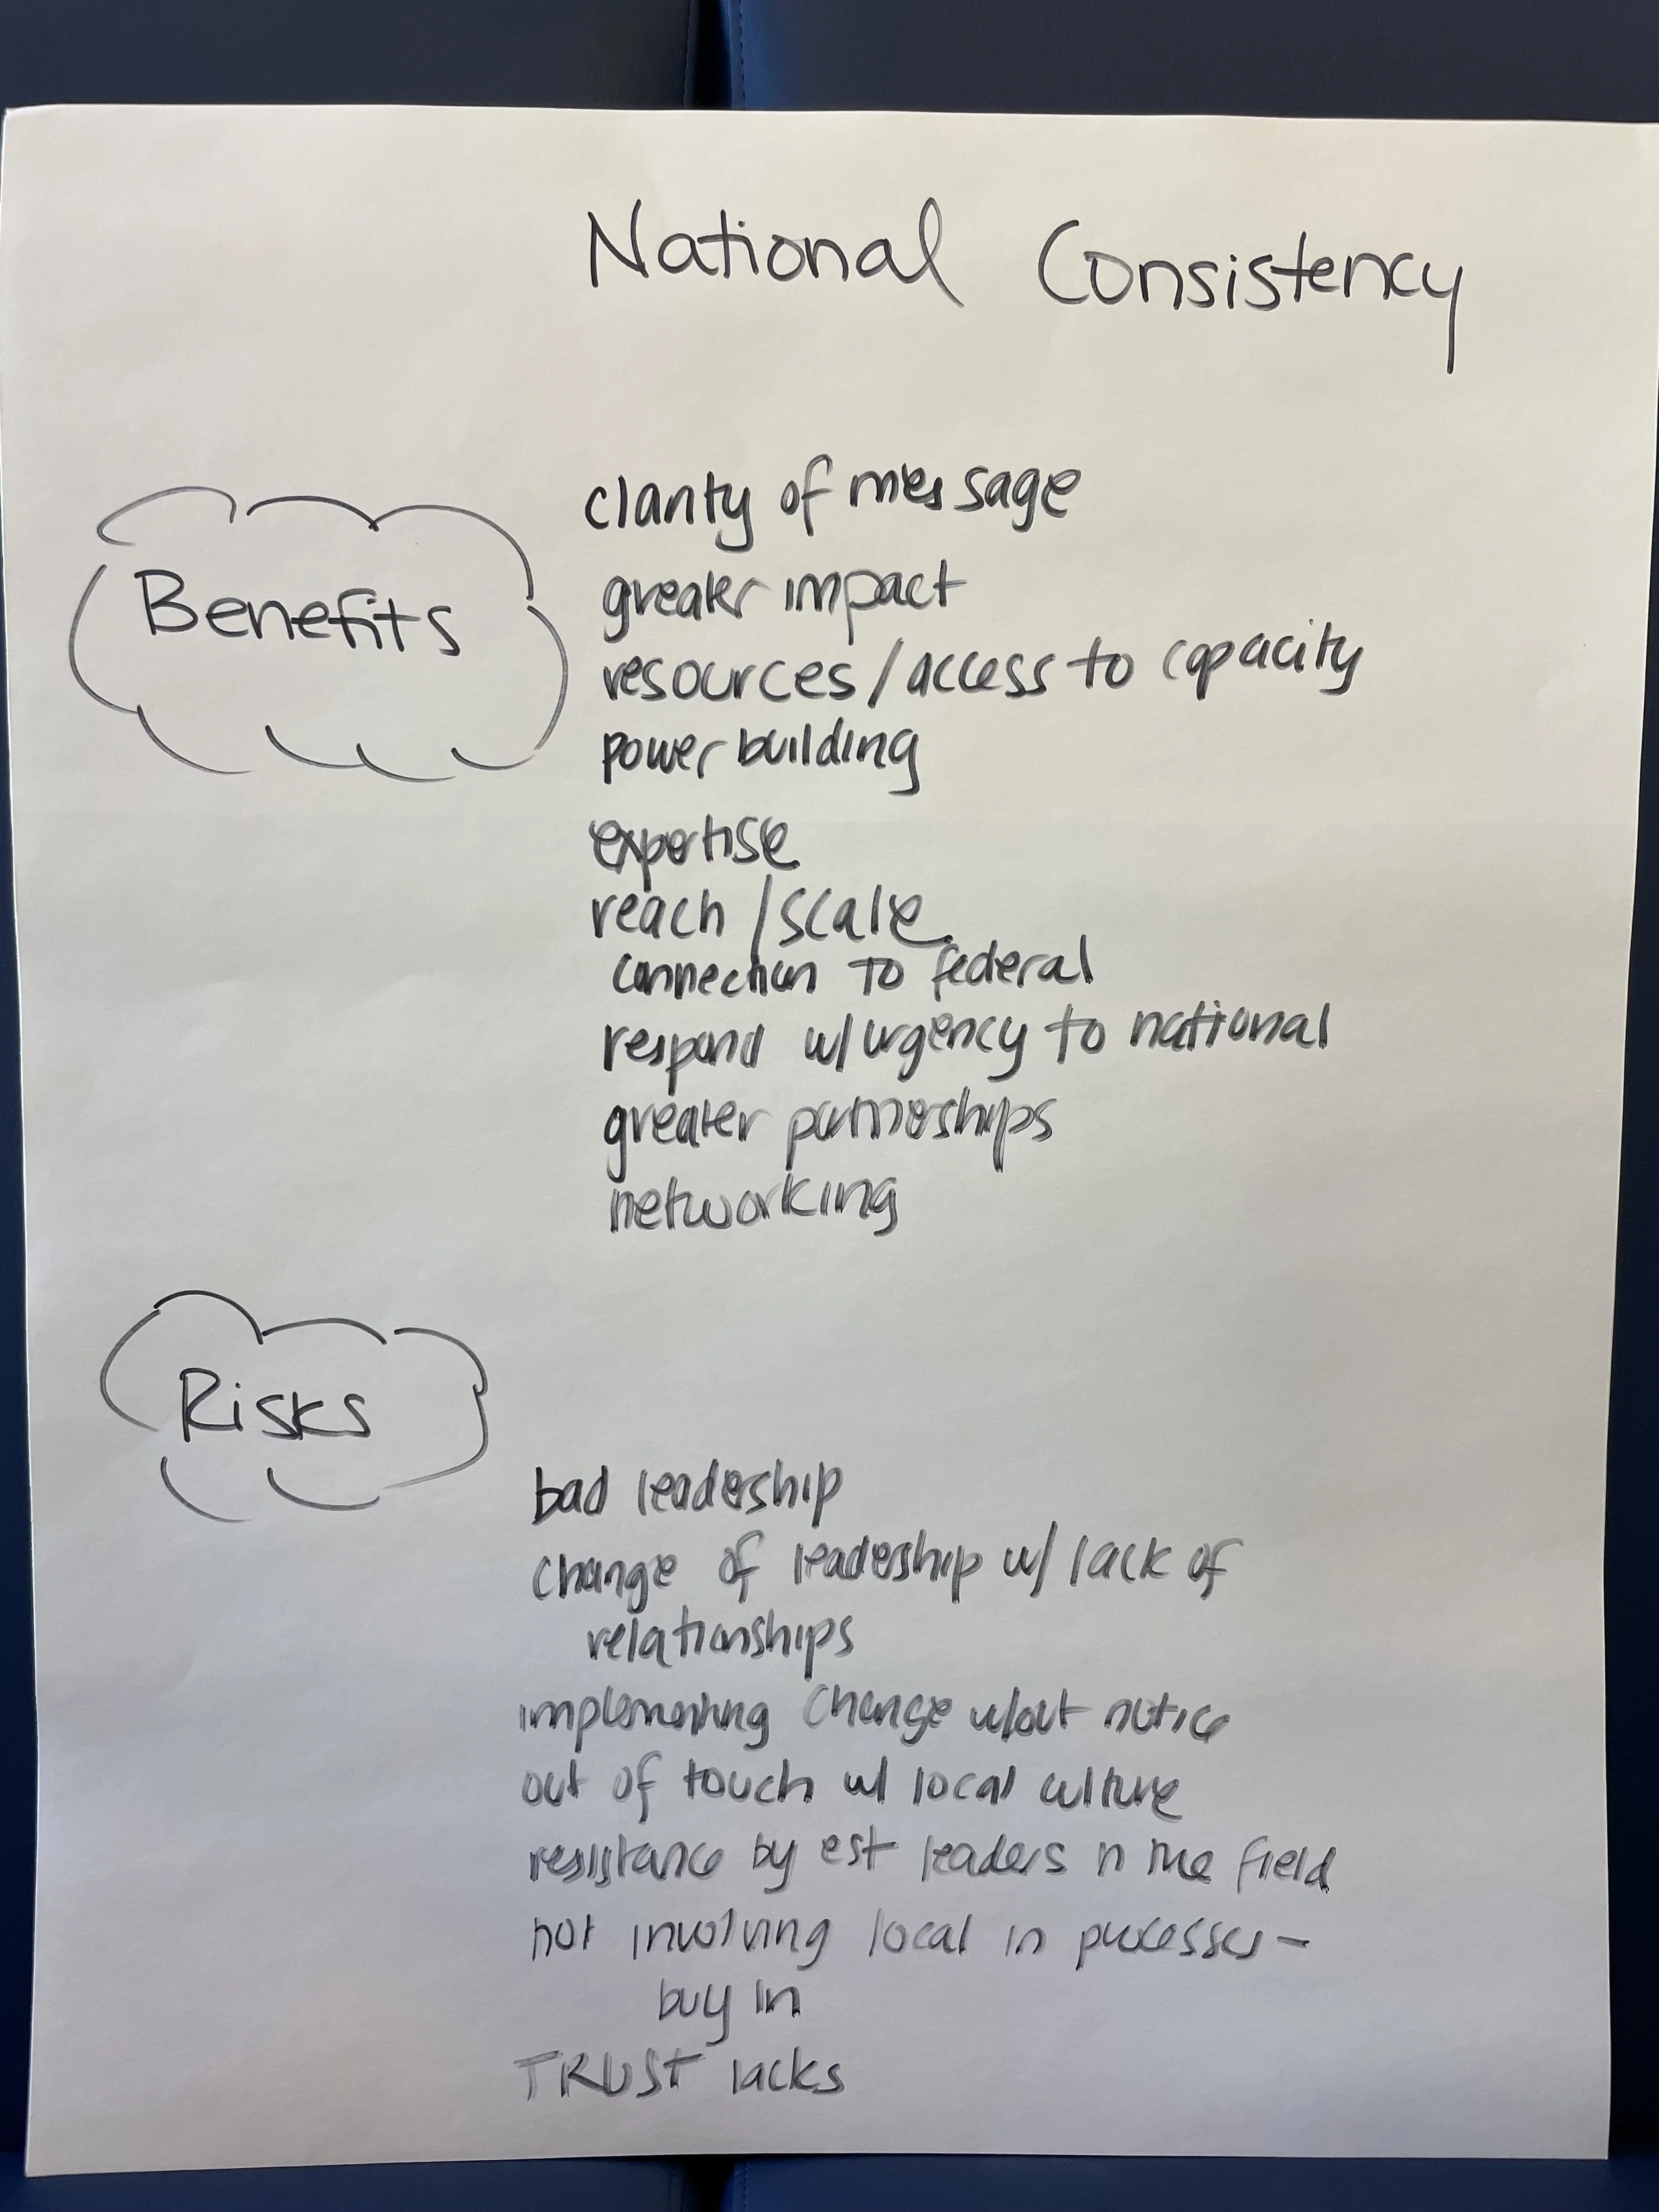 National Consistency
Benefits
clarity of message
greater impact
resources/access to capacity
power building
expertise
reach/scale
connection to federal
respond w/urgency to national
greater partnerships
networking
Risks
bad leadership
change of leadership w/ lack of
relationships
implementing change w/out notice
out of touch w/ local culture
resistance by est leaders n the field
not involving local in processes -
buy in
TRUST lacks